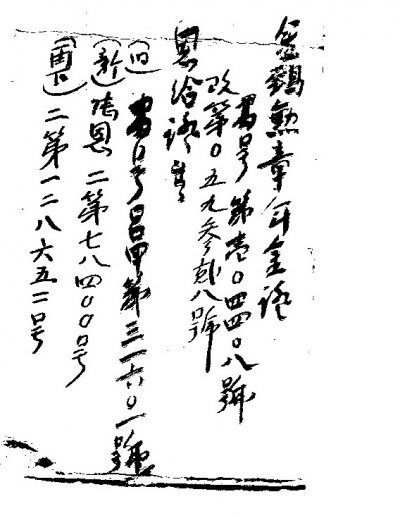 金鵄勲章年金證
番号 第壱〇四四〇八號
改第〇五九参弐八號
恩給證書
(旧) 第三一六〇一號
(新) 陸恩 二第七八四〇〇〇号
二第一二八六五二号